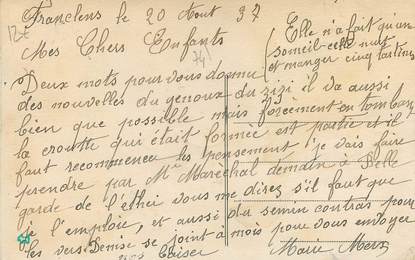 Franclens le 20 Aout 37
Mes Chers Enfants
Elle n'a fait qu'un
someil cette nuit
et manger cinq tartines
Deux mots pour vous donner
des nouvelles du genoux du zizi il va aussi
bien que possible mais forcement en tombant
la croutte qui était formée est partie et il
faut recommencer les pensement je vais faire
prendre par Mr Maréchal demain à Belle
garde de l'éthei vous me direz s'il faut que
je l'emploie, et aussi du semin contras pour
les vers Denise se joint à moi pour vous envoyer
nos baiser Marie Merz